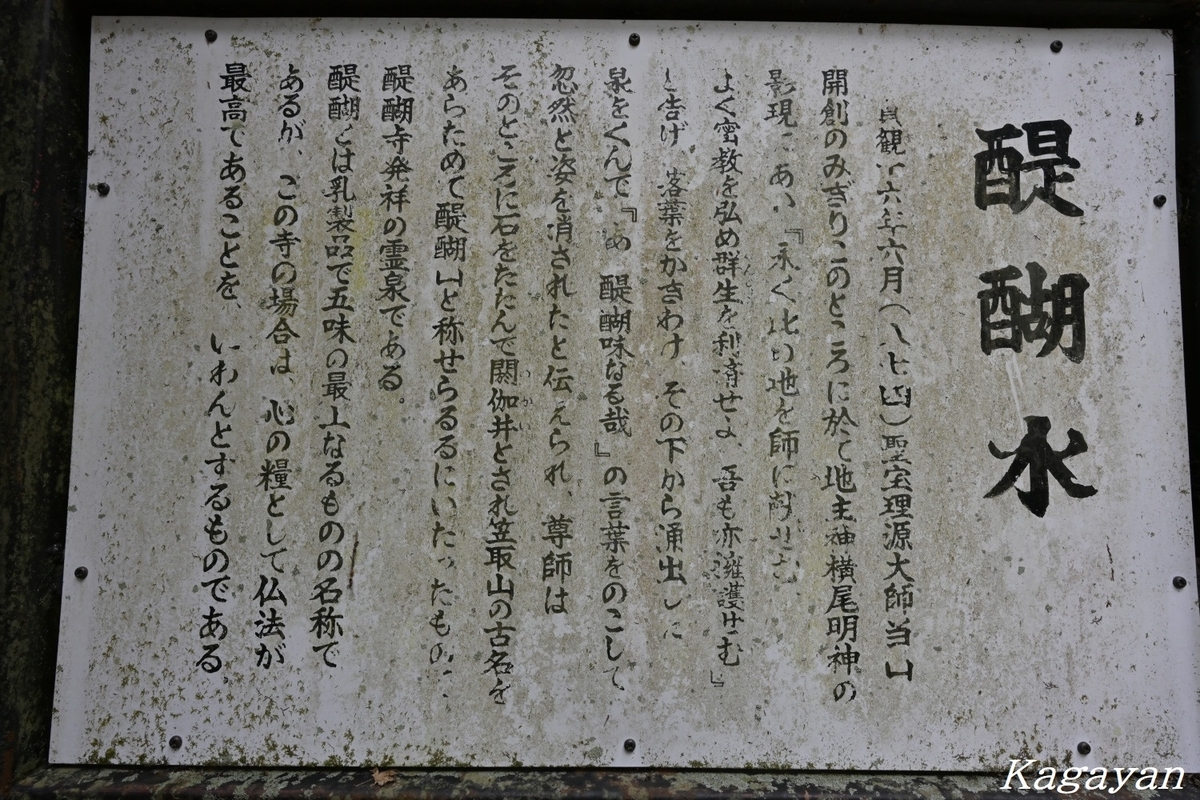 醍醐水
貞観十六年六月(八七四)聖宝理源大師当山
開創のみぎりこのところに於て地主神横尾明神の
影現にあい『永く此の地を師に献せむ
よく密教を弘め群生を利済せよ 吾も亦擁護せむ』
と告げ、落葉をかきわけ、その下から涌出した
泉をくんで『あゝ醍醐味なる哉』の言葉をのこして、
忽然と姿を消されたと伝えられ、尊師は
そのところに石をたたんで閼伽井とされ笠取山の古名を
あらためて醍醐山と称せらるるにいたったもので
醍醐寺発祥の霊泉である。
醍醐とは乳製品で五味の最上なるものの名称で
あるが、この寺の場合は、心の糧として仏法が
最高であることを、いわんとするものである
Kagayan